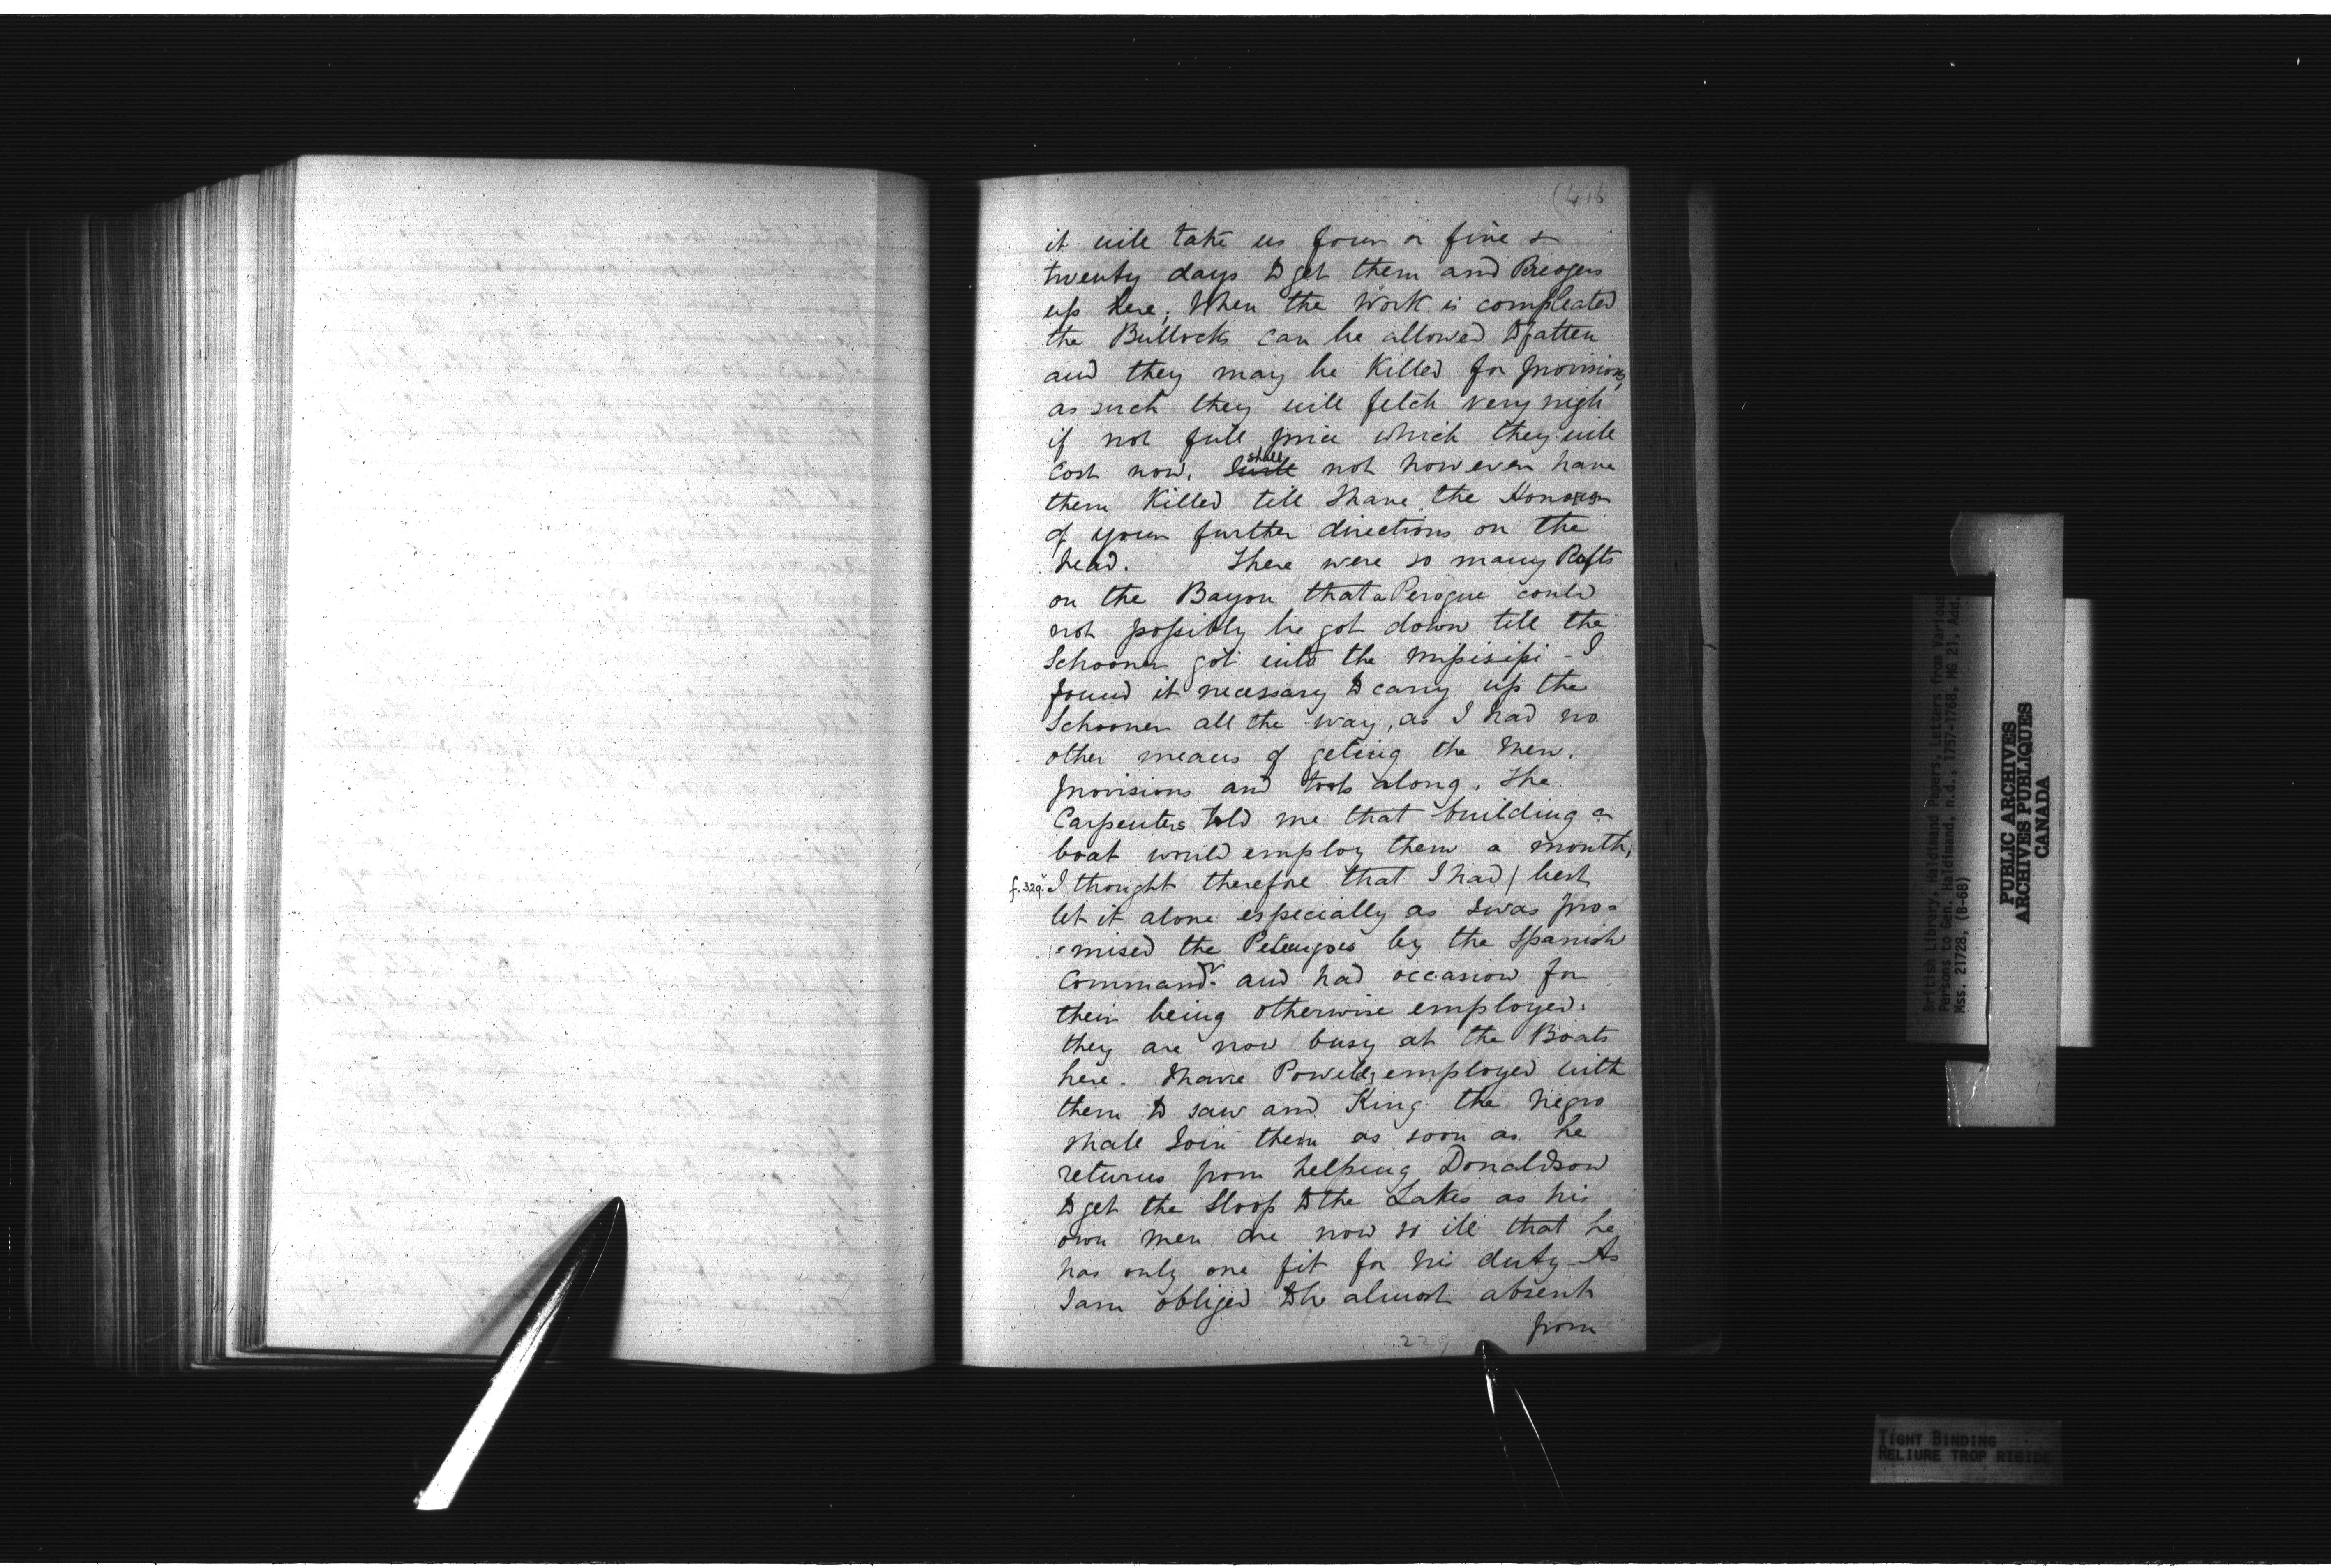 (416
it will take us four or five &
twenty days to get them and Pieogers
up here; When the Work is compleated
the Bullocks can be allowed to fatten
and they may be Killed for provisions,
as such they will fetch very nigh
if not full price which they will
cost now. I will shall not however have
them Killed till I have the Honour
of your further directions on the
head. There were so many Rafts
on the Bayou that a Perogue could
not possibly be got down till the
Schooner got into the Missisipi - I
found it necessary to carry up the
Schooner all the way, as I had no
other means of geting the Men.
provisions and tools along. The
Carpenters told me that building a
boat would employ them a month,
f.329v I thought therefore that I had / best
let it alone especially as I was pro=
=mised the Peteaugoes by the Spanish
Commandr. and had occasion for
their being otherwise employed.
they are now busy at the Boats
here. I have Powell, employed with
them to saw and King the Negro
shall Join them as soon as he
returns from helping Donaldson
to get the Sloop to the Lakes as his
own men are now so ill that he
has only one fit for his duty As
I am obliged to be almost absent
from
229
British Library, Haldimand Papers, Letters from Various
Persons to Gen. Haldimand, n.d., 1757-1768, MG 21, Add.
Mss. 21728, (B-68)
PUBLIC ARCHIVES
ARCHIVES PUBLIQUES
CANADA
TIGHT BINDING
RELIURE TROP RIGIDE